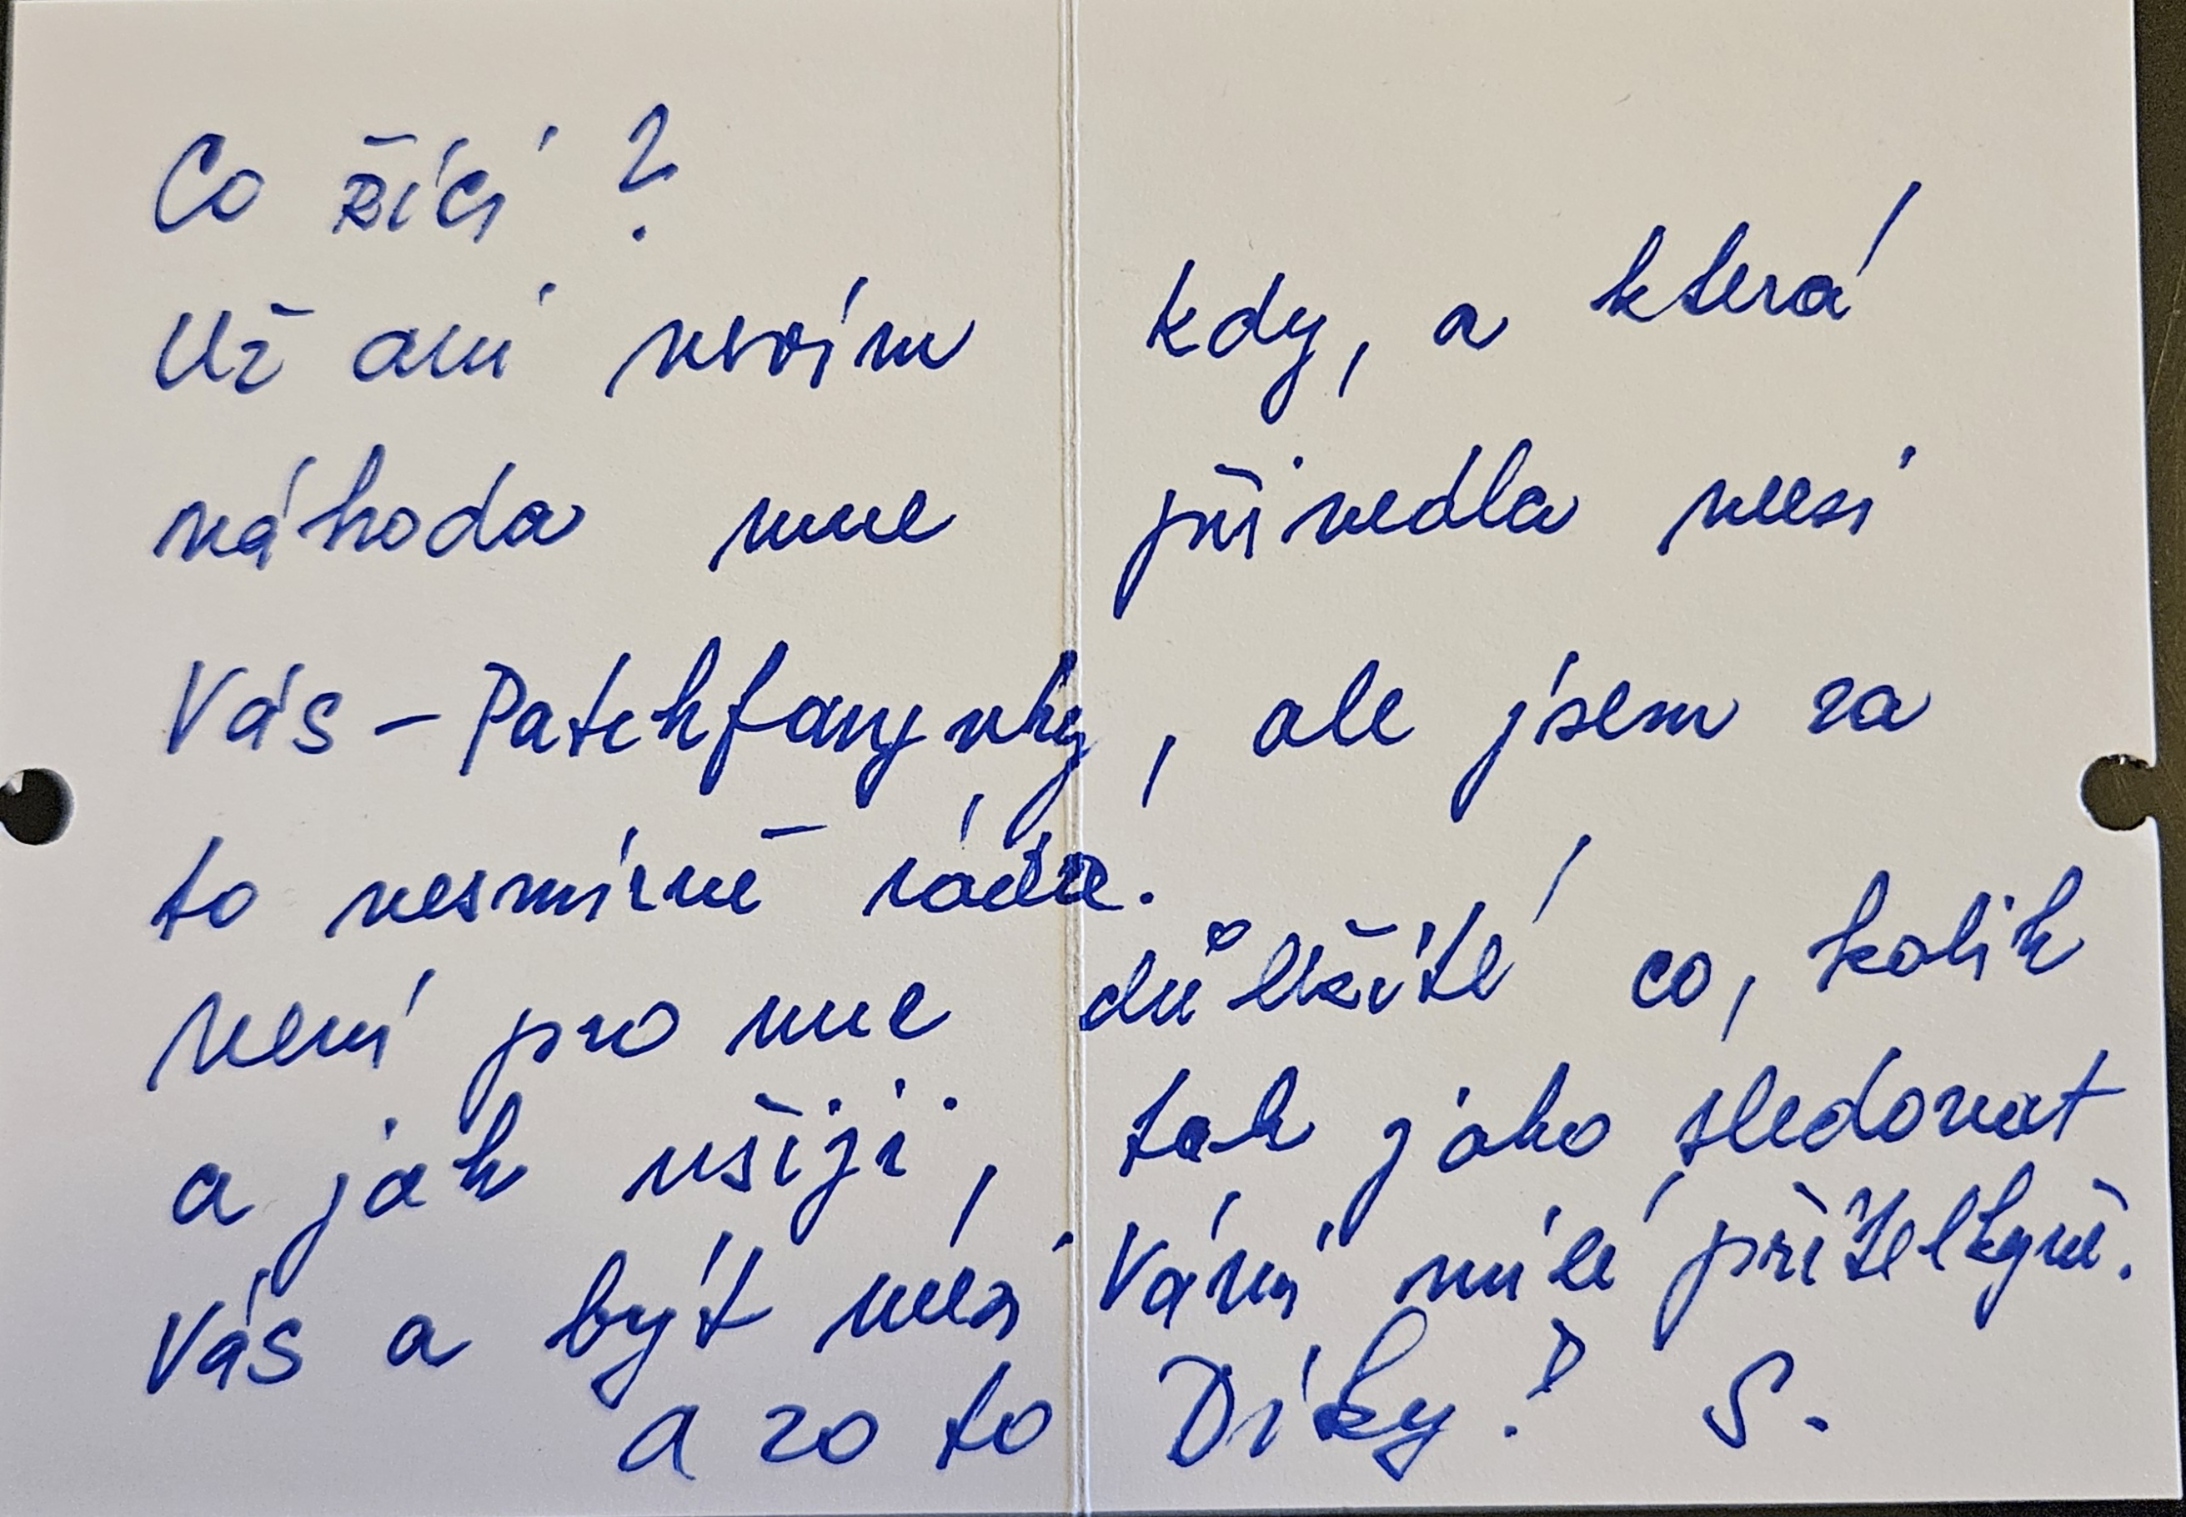 Co říci?
Už ani nevím kdy, a která
náhoda mne přivedla mezi
Vás – Patchfanynky, ale jsem za
to nesmírně ráda.
Není pro mne důležité co, kolik
a jak ušiji, tak jako sledovat
Vás a být mezi Vámi milé přítelkyně.
A za to Díky! S.